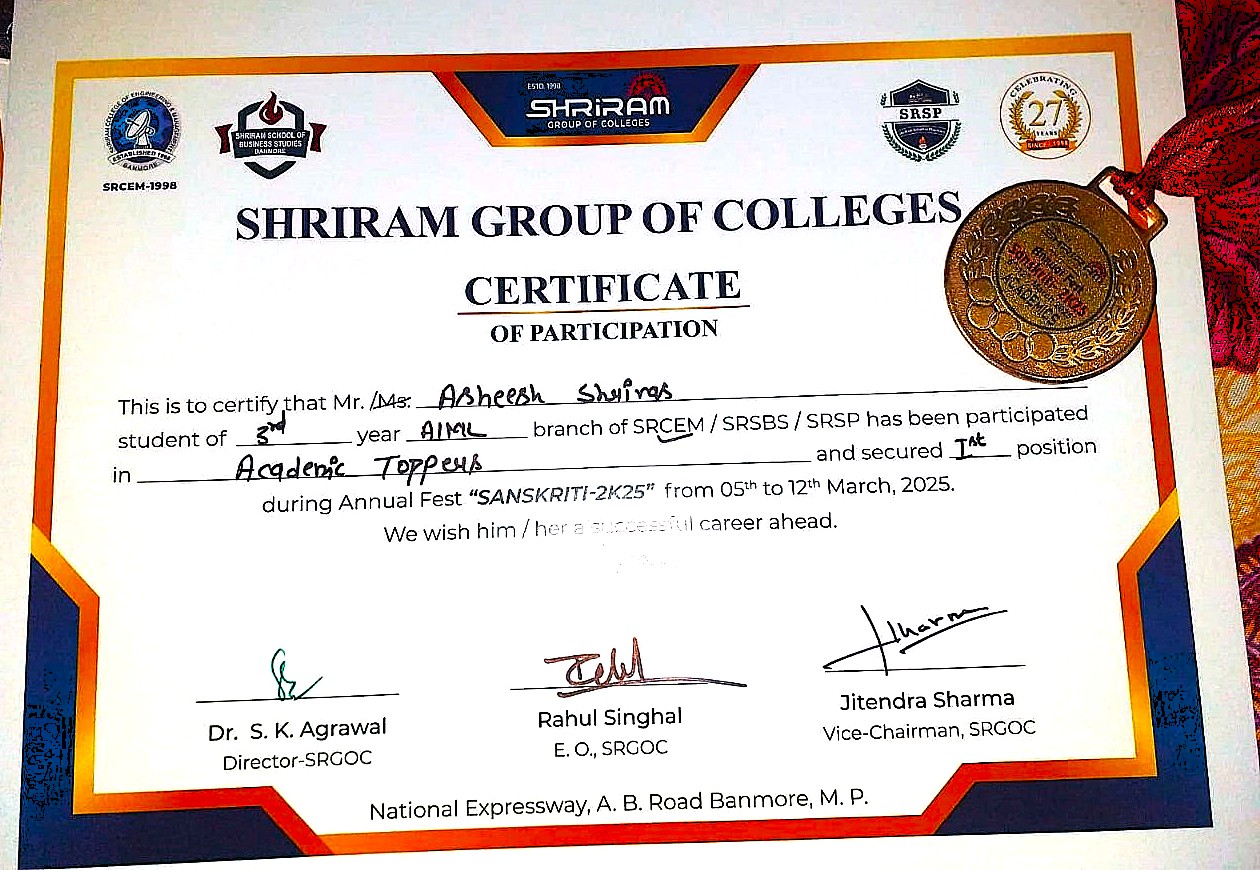 ESTD. 1998
SHRIRAM
GROUP OF COLLEGES
SHRIRAM COLLEGE OF ENGINEERING & MANAGEMENT
ESTABLISHED 1998
BANMORE
SRCEM-1998
SHRIRAM SCHOOL OF
BUSINESS STUDIES
BANMORE
SRSP
CELEBRATING
27
YEARS
SINCE - 1998
SHRIRAM GROUP OF COLLEGES
CERTIFICATE
OF PARTICIPATION
This is to certify that Mr. /Ms. Asheesh Shrivas
student of 3rd year AIML branch of SRCEM / SRSBS / SRSP has been participated
in Academic Toppers and secured Ist position
during Annual Fest “SANSKRITI-2K25” from 05th to 12th March, 2025.
We wish him / her a successful career ahead.
Dr. S. K. Agrawal
Director-SRGOC
Rahul Singhal
E. O., SRGOC
Jitendra Sharma
Vice-Chairman, SRGOC
National Expressway, A. B. Road Banmore, M. P.